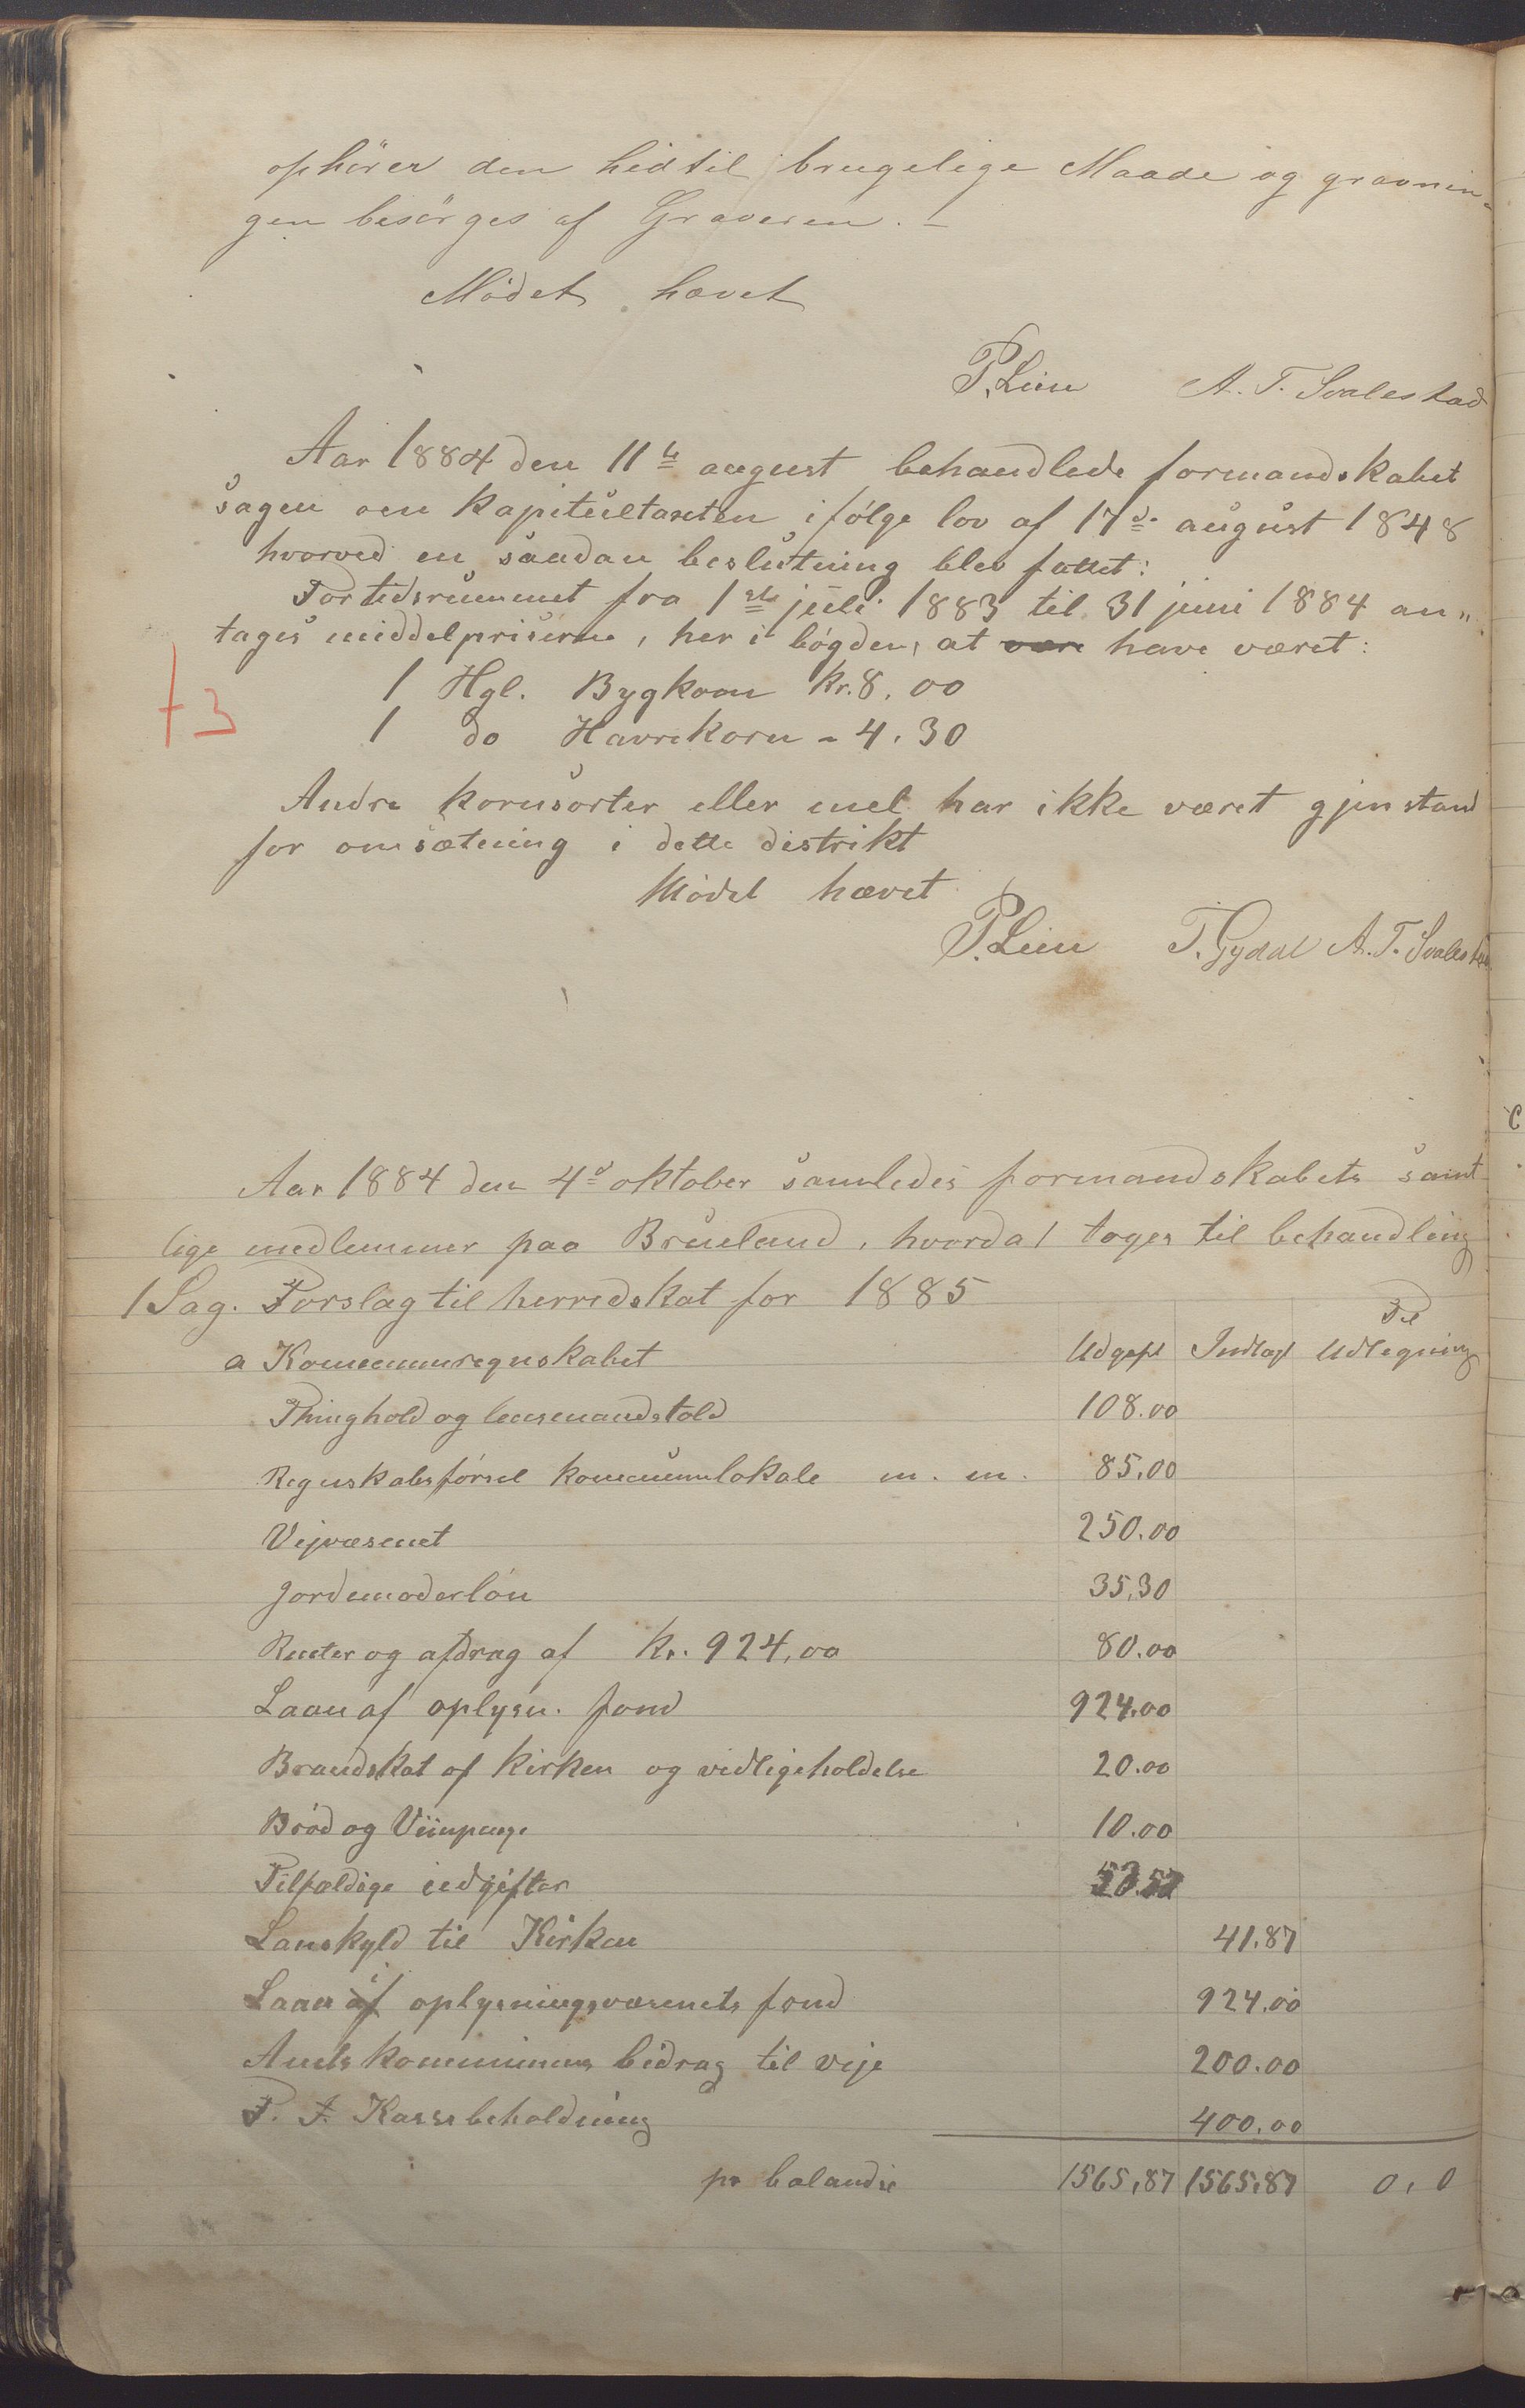 ophører den hidtil brugelige Maade og gravnin-
gen besørges af Graveren. —
Mødet hævet
P. Lein A. T. Svalestad
Aar 1884 den 11te august behandlede formandskabet
sagen om kapiteltaxten ifølge lov af 17de august 1848
hvorved en saadan beslutning blev fattet:
For tidsrummet fra 1ste juli 1883 til 31 juni 1884 an„
tages middelpriserne, her i bøgden, at være have været:
1 Hgl. Bygkorn kr. 8.00
1 do Havrekorn - 4.30
+3
Andre kornsorter eller mel har ikke været gjenstand
for omsætning i dette distrikt
Mødet hævet
P. Lein T. Gydal A. T. Svalestad
Aar 1884 den 4de oktober samledes formandskabets samt
lige medlemmer paa Brueland, hvorda toges til behandling
1 Sag. Forslag til herredskat for 1885
a Kommunregnskabet Udgift Indtægt Til Udligning
Thinghold og lensmandstold 108.00
Regnskabsførsel kommunelokale m. m. 85.00
Vejvæsenet 250.00
Jordemoderløn 35.30
Renter og afdrag af kr. 924,00 80.00
Laan af oplysn. fond 924.00
Brandskat af kirken og vedligeholdelse 20.00
Brød og Viinpenge 10.00
Tilfældige udgifter 53.57
Lanskyld til Kirken 41.87
Laan af oplysningsvæsenets fond 924.00
Amtskommunens bidrag til veje 200.00
P. T. Kassebeholdning 400.00
pr balandse 1565,87 1565,87 0,0